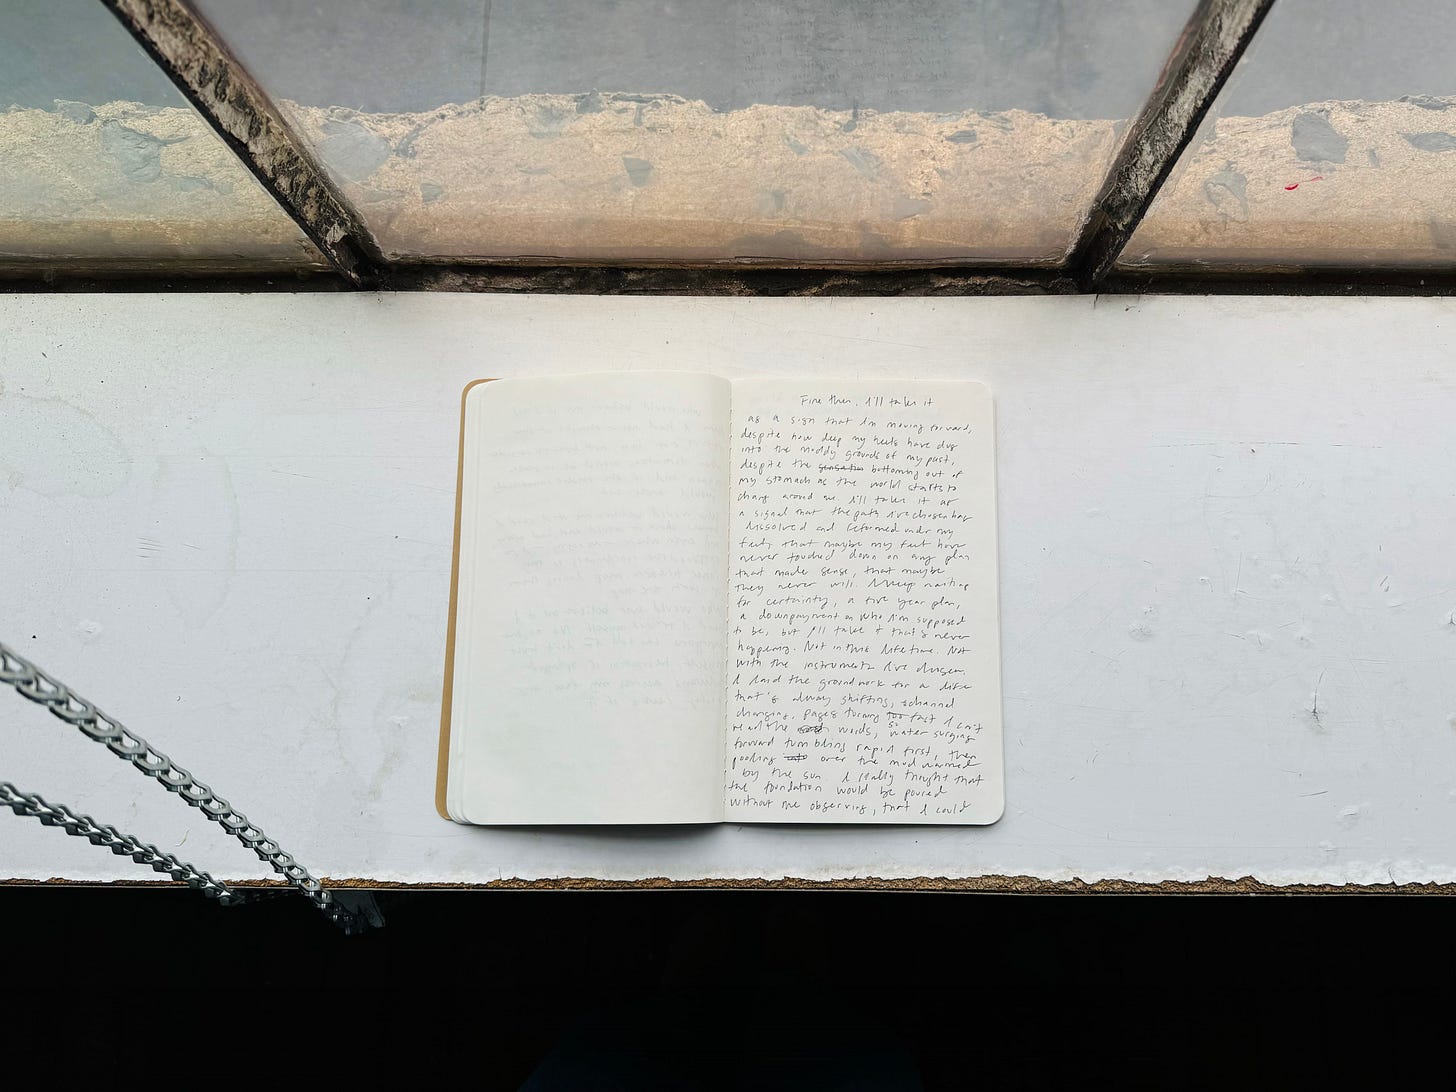 Fine then, I'll take it
as a sign that I'm moving forward,
despite how deep my heels have dug
into the muddy grounds of my past,
despite the sensation bottoming out of
my stomach as the world starts to
change around me I'll take it as
a signal that the path I've chosen has
dissolved and reformed under my
feet, that maybe my feet have
never touched down on any plan
that made sense, that maybe
they never will. I keep waiting
for certainty, a five year plan,
a downpayment on who I'm supposed
to be, but I'll take it that's never
happening. Not in this lifetime. Not
with the instruments I've chosen.
I laid the groundwork for a life
that's always shifting, channel
changing, pages turning too so fast I can't
read the words, water surging
forward tumbling rapid first, then
pooling into over the mud warmed
by the sun. I really thought that
the foundation would be poured
without me observing, that I could